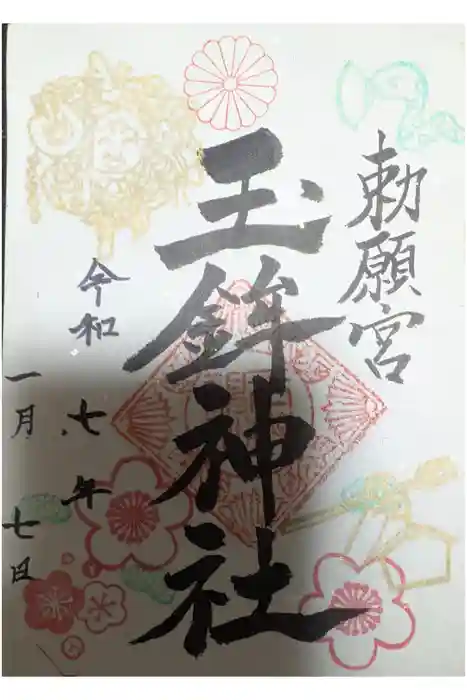 勅願宮
玉鉾神社
令和
七年
一月七日